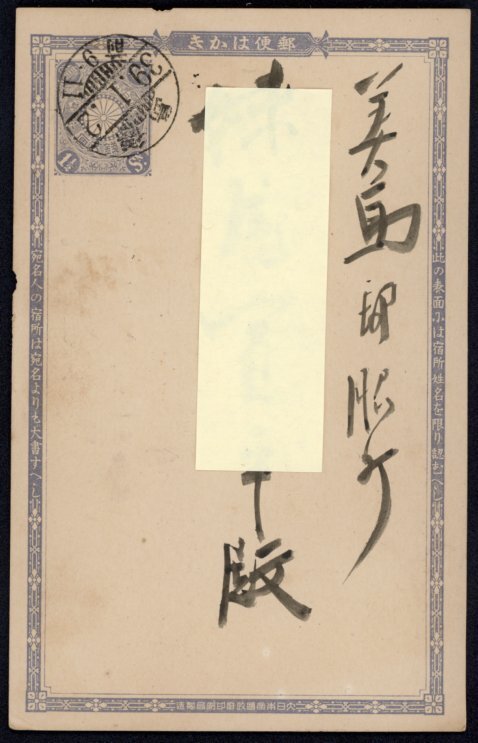 郵便はかき
美馬郡脇町
殿
39.1.1
1½
此の表面には宿所姓名を限り認むへし
宛名人の宿所は宛名よりも大書すへし
大日本帝國政府印刷局製造